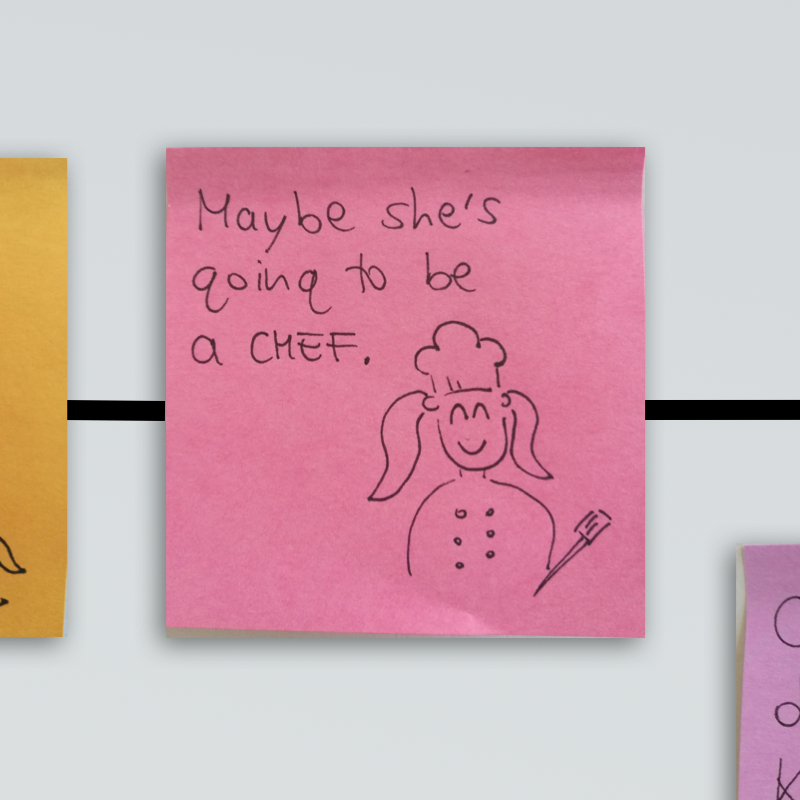 Maybe she's
going to be
a CHEF.